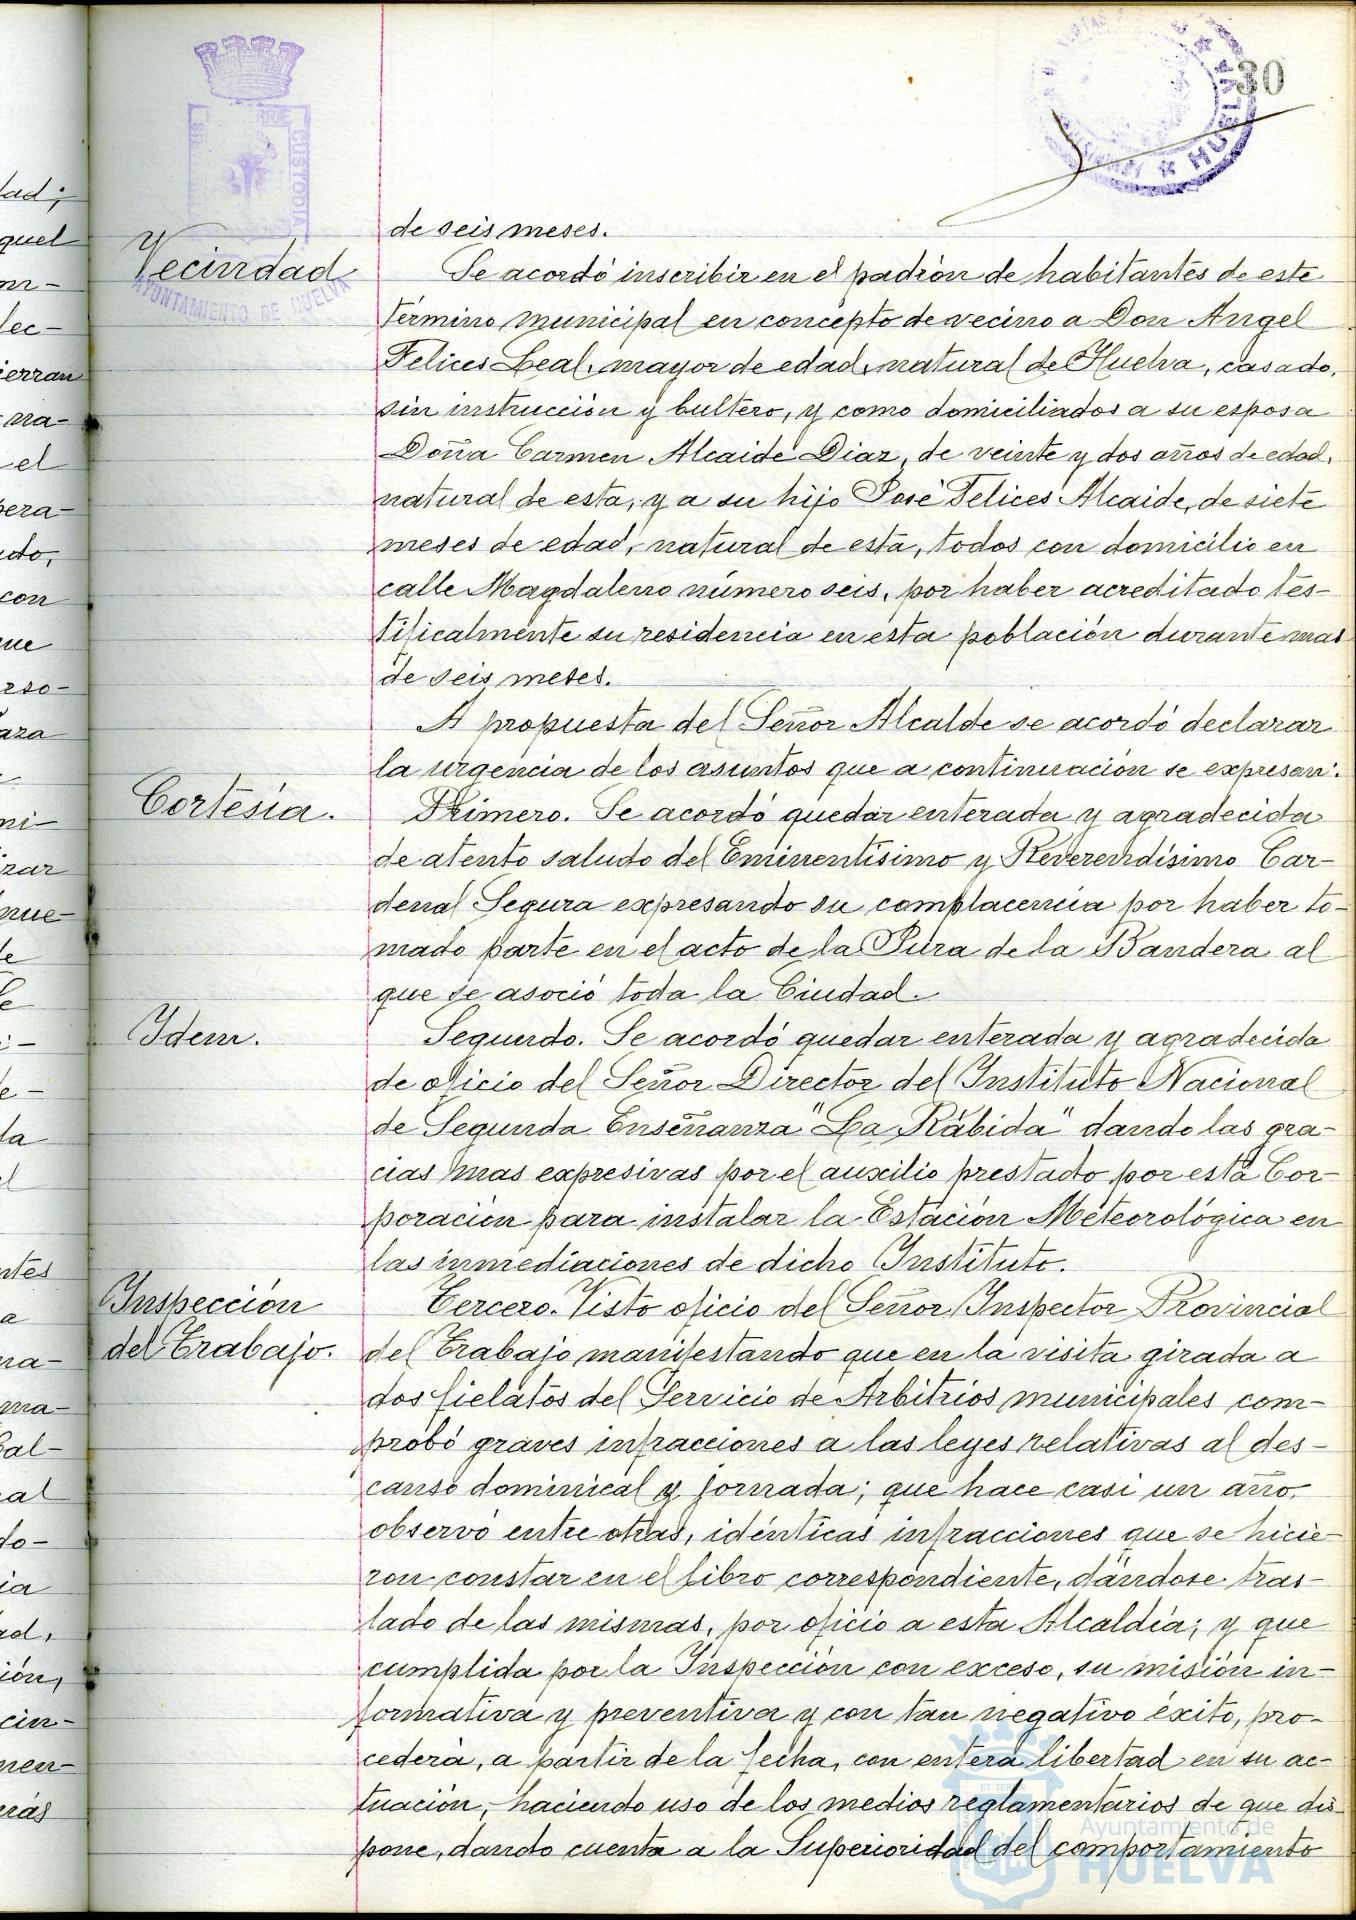 30
HUELVA
CUSTODIA
AYUNTAMIENTO DE HUELVA
de seis meses.
Vecindad
Se acordó inscribir en el padrón de habitantes de este
término municipal en concepto de vecino a Don Angel
Felices Leal, mayor de edad, natural de Huelva, casado,
sin instrucción y bultero, y como domiciliados a su esposa
Doña Carmen Alcaide Diaz, de veinte y dos años de edad,
natural de esta, y a su hijo José Felices Alcaide, de siete
meses de edad, natural de esta, todos con domicilio en
calle Magdaleno número seis, por haber acreditado tes-
tificalmente su residencia en esta población durante mas
de seis meses.
A propuesta del Señor Alcalde se acordó declarar
la urgencia de los asuntos que a continuación se expresan:
Cortesía.
Primero. Se acordó quedar enterada y agradecida
de atento saludo del Eminentísimo y Reverendísimo Car-
denal Segura expresando su complacencia por haber to-
mado parte en el acto de la Jura de la Bandera al
que se asoció toda la Ciudad.
Idem.
Segundo. Se acordó quedar enterada y agradecida
de oficio del Señor Director del Instituto Nacional
de Segunda Enseñanza "La Rábida" dando las gra-
cias mas expresivas por el auxilio prestado por esta Cor-
poración para instalar la Estación Meteorológica en
las inmediaciones de dicho Instituto.
Inspección
del Trabajo.
Tercero. Visto oficio del Señor Inspector Provincial
del Trabajo manifestando que en la visita girada a
dos fielatos del Servicio de Arbitrios municipales com-
probó graves infracciones a las leyes relativas al des-
canso dominical y jornada; que hace casi un año,
observó entre otras, idénticas infracciones que se hicie-
ron constar en el libro correspondiente, dándose tras-
lado de las mismas, por oficio a esta Alcaldía; y que
cumplida por la Inspección con exceso, su misión in-
formativa y preventiva y con tan negativo éxito, pro-
cederá, a partir de la fecha, con entera libertad en su ac-
tuación, haciendo uso de los medios reglamentarios de que dis-
pone, dando cuenta a la Superioridad del comportamiento
Ayuntamiento de
HUELVA